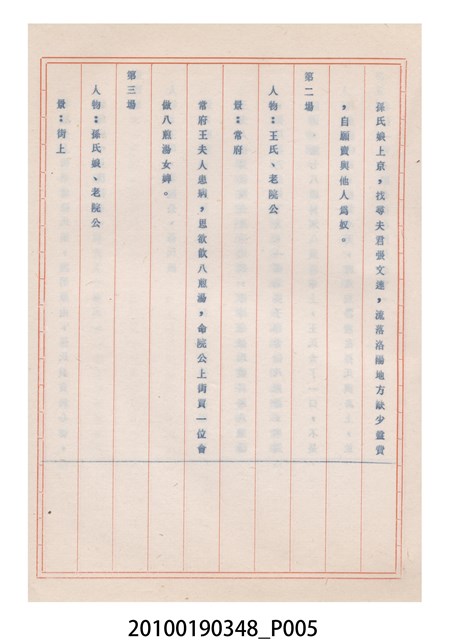 孫氏娘上京，找尋夫君張文達，流落洛陽地方缺少盤費
，自願賣與他人為奴。
第二場
人物：王氏、老院公
景：常府
常府王夫人患病，思欲飲八煎湯，命院公上街買一位會
做八煎湯女婢。
第三場
人物：孫氏娘、老院公
景：街上
20100190348_P005